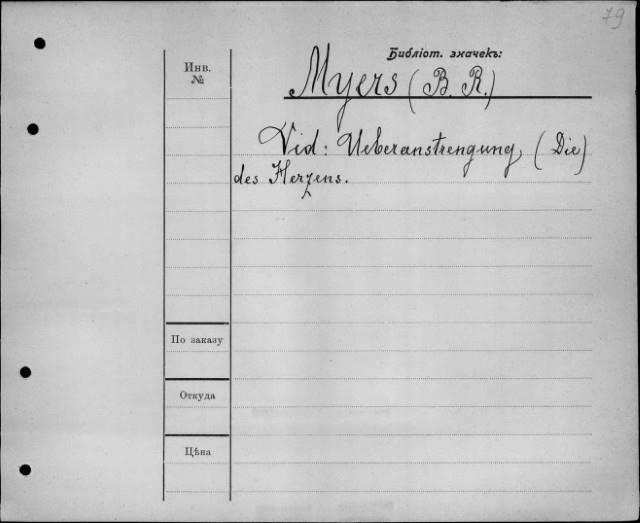 79
Библіот. значекъ:
Инв.
№
Myers (B. R.)
Vid: Ueberanstrengung, (Die)
des Herzens.
По заказу
Откуда
Цѣна